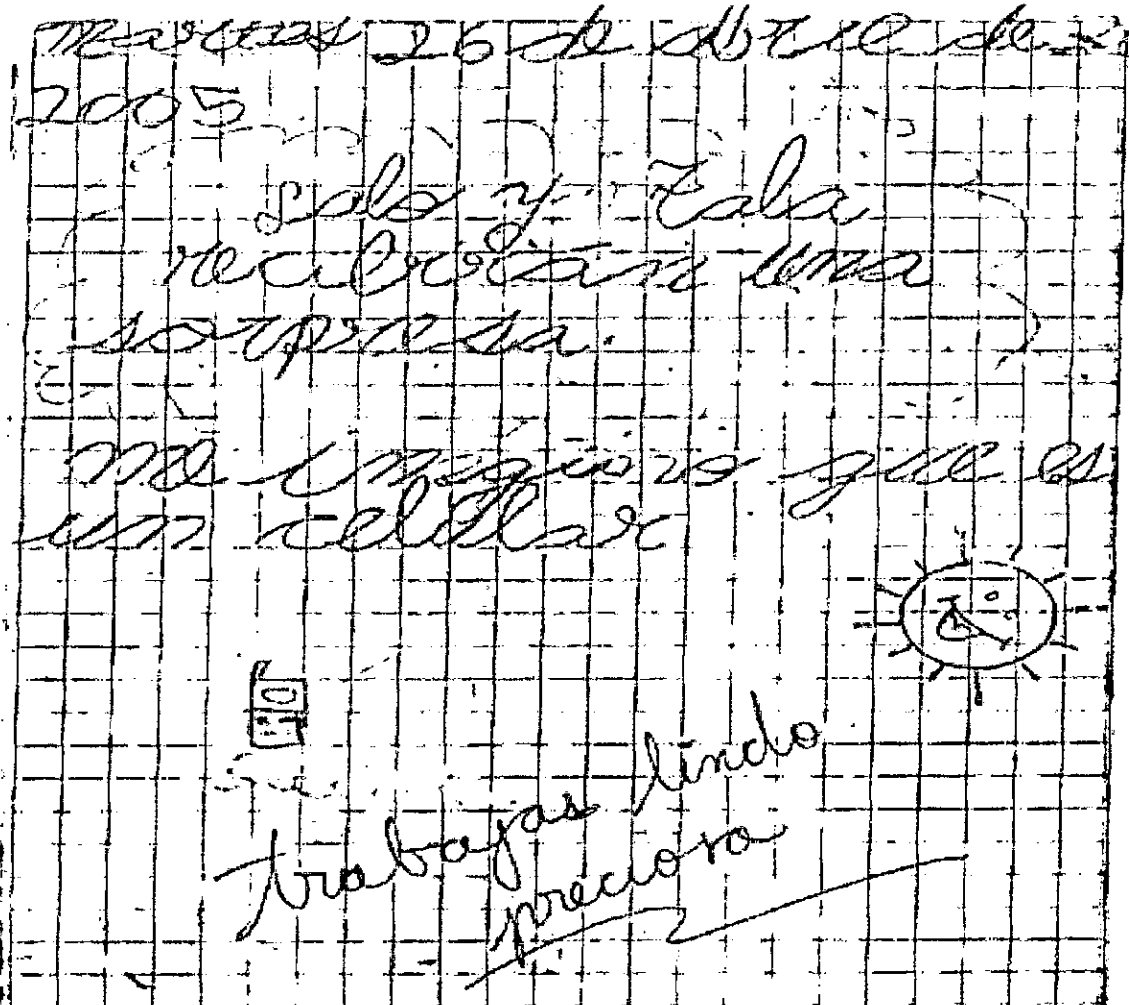 martes 26 de abril de
2005
Lalo y Lala
recibirán una
sorpresa.
me imagino que es
un celular
trabajas lindo
preciosa